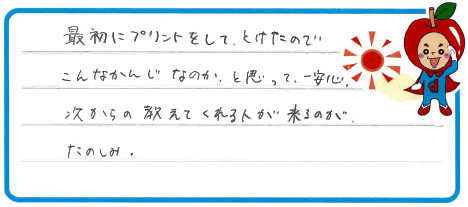 最初にプリントをして、とけたので
こんなかんじなのか、と思って、一安心。
次からの教えてくれる人が来るのが、
たのしみ.